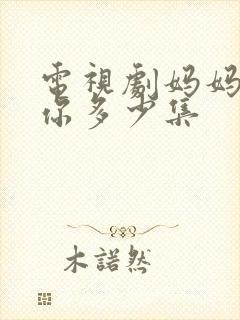 電視劇妈妈
你多少集
木諾然